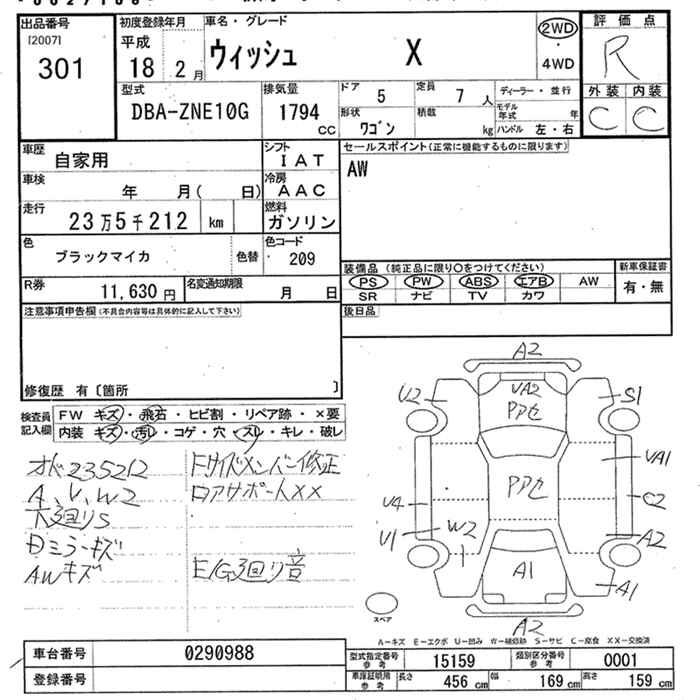 出品番号
[2007]
301
初度登録年月
平成
18 2 月
車名・グレード
ウィッシュ X
2WD
・
4WD
評価点
R
外装 内装
C C
型式
DBA-ZNE10G
排気量
1794
CC
ドア 5
定員 7 人
形状 ワゴン
積載 kg
ディーラー・並行
モデル年式 年
ハンドル 左・右
車歴 自家用
シフト IAT
車検 年 月( 日)
冷房 AAC
走行 23万5千212 km
燃料 ガソリン
色 ブラックマイカ 色替
色コード 209
R券 11,630 円
名変通知期限 月 日
セールスポイント(正常に機能するものに限ります)
AW
装備品 (純正品に限り○をつけてください)
PS PW ABS エアB AW
SR ナビ TV カワ
新車保証書
有・無
後日品
注意事項申告欄(不具合内容等は具体的に記入して下さい)
修復歴 有〔箇所 〕
検査員記入欄
FW キズ・飛石・ヒビ割・リペア跡・×要
内装 キズ・汚レ・コゲ・穴・スレ・キレ・破レ
オド235212
A、V、W2
下廻りS
Dミラーキズ
AWキズ
Fサイドメンバー修正
ロアサポート××
E/G廻り音
A2
U2
VA2
アアセ
S1
VA1
アアセ
V4
C2
V1
W2
A2
A1
A1
A2
スペア
A－キズ E－エクボ U－凹み W－補修跡 S－サビ C－腐食 XX－交換済
車台番号 0290988
登録番号
型式指定番号 参考 15159
類別区分番号 参考 0001
車庫証明用 参考 長さ 456 cm 幅 169 cm 高さ 159 cm